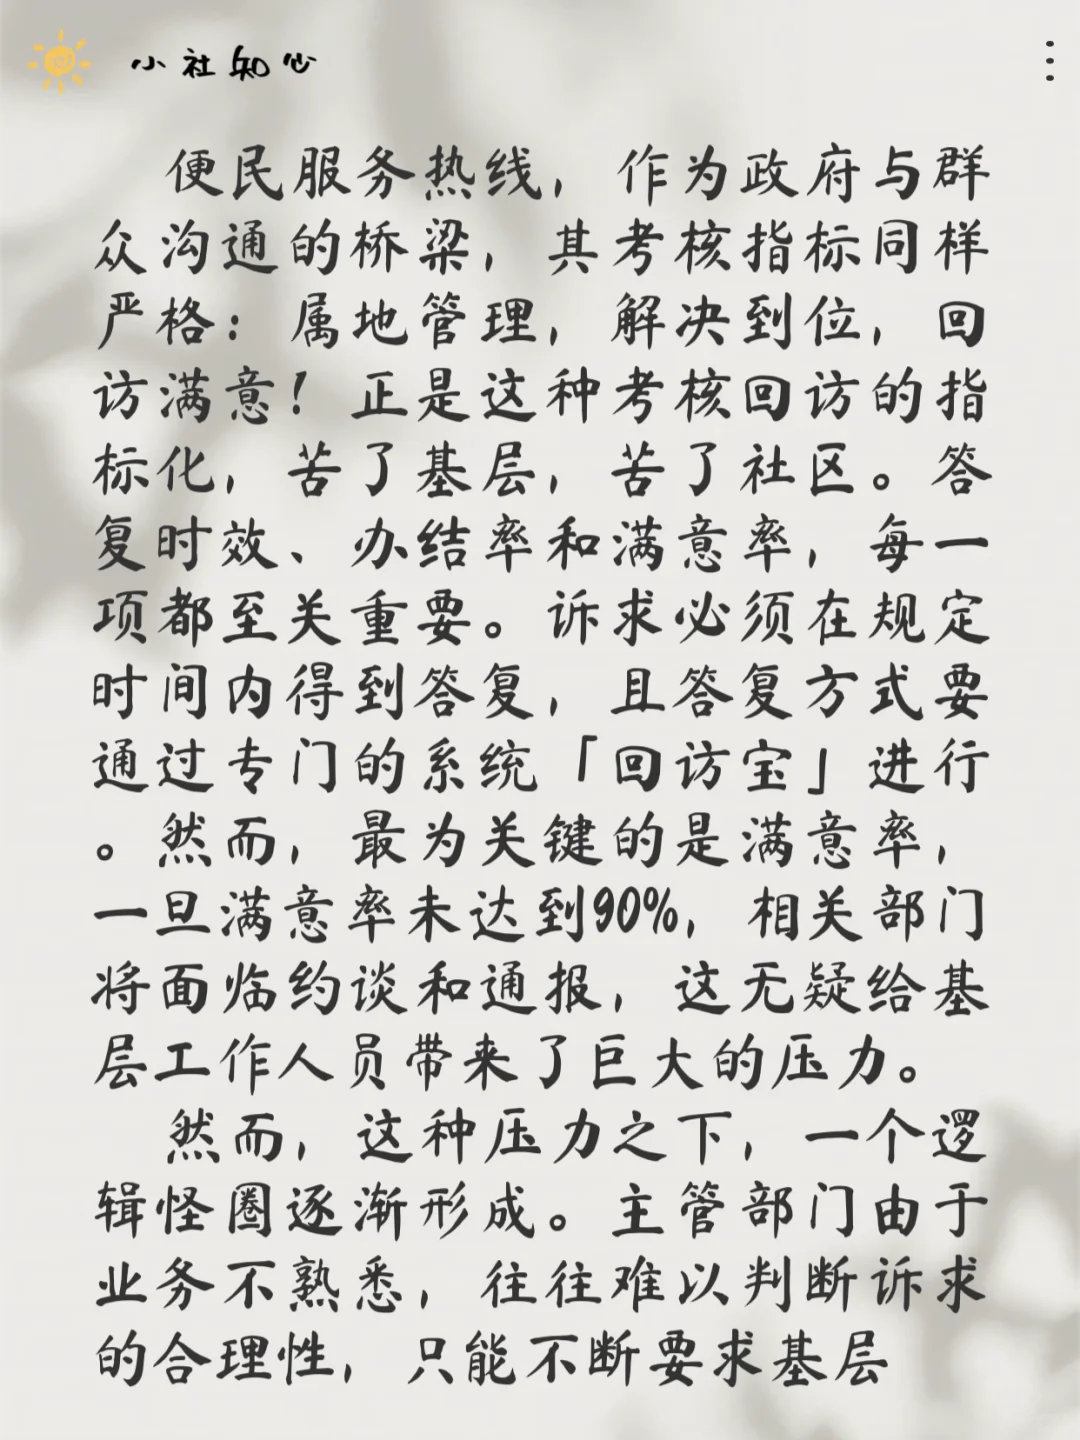 小社知心
便民服务热线，作为政府与群
众沟通的桥梁，其考核指标同样
严格：属地管理，解决到位，回
访满意！正是这种考核回访的指
标化，苦了基层，苦了社区。答
复时效、办结率和满意率，每一
项都至关重要。诉求必须在规定
时间内得到答复，且答复方式要
通过专门的系统「回访宝」进行
。然而，最为关键的是满意率，
一旦满意率未达到90%，相关部门
将面临约谈和通报，这无疑给基
层工作人员带来了巨大的压力。
然而，这种压力之下，一个逻
辑怪圈逐渐形成。主管部门由于
业务不熟悉，往往难以判断诉求
的合理性，只能不断要求基层